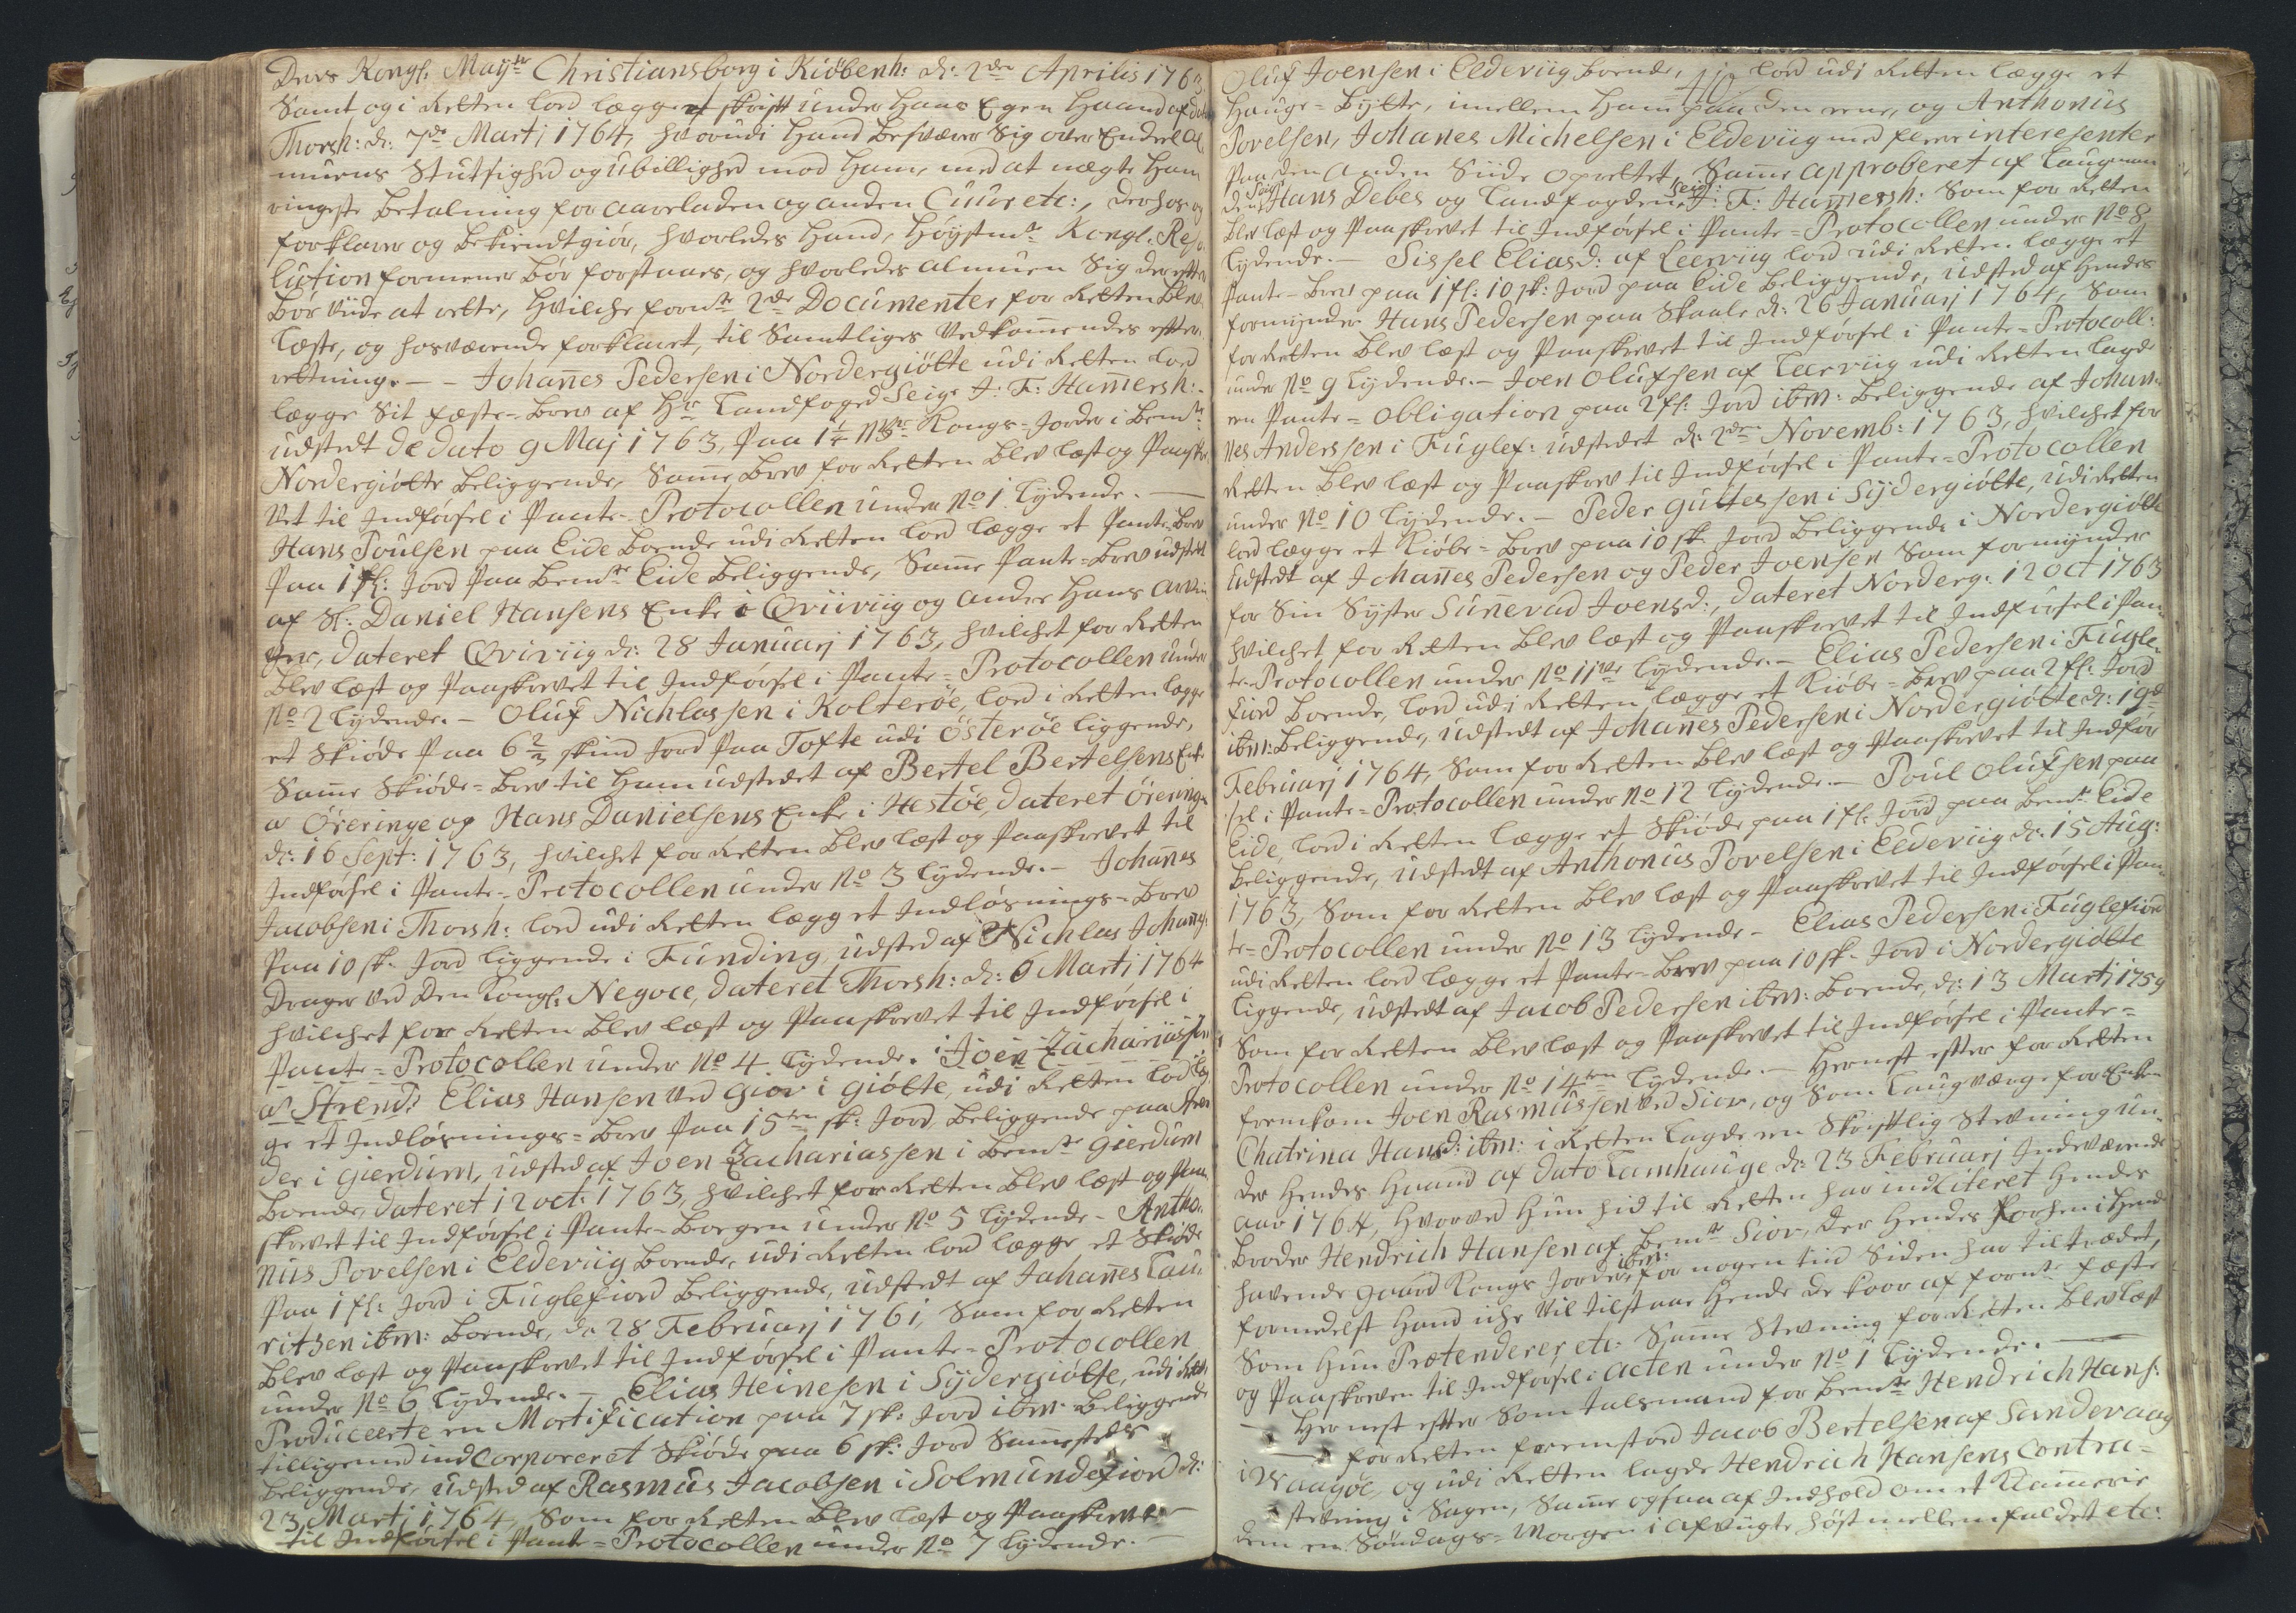 Ders Kongl: Maÿ:tr Christiansborg i Kiöbenh: d: 2den Aprilis 1763,
Samt og i Retten lod lægge et skrift under Hans Egen Haand af
Thorsh: d: 7de Martj 1764, hvorudi Hand besværer Sig over Endeel al-
muens Stutsighed og Ubillighed mod Ham, med at nægte Ham
ringeste betalning for aareladen og anden Cuur etc:, derhos og
forklarer og bekiendtgiör, hvorledes Hand, Höÿstmte Kongl. Reso-
lution formener bör forstaaes, og hvorledes almuen Sig der efter
bör vide at rette, hvilche formte 2de Documenter for Retten blev
Læste, og hosværende forklaret, til Samtliges Vedkommendes efter-
retning. - - Johañes Pedersen i Nordergiötte udi Retten lod
lægge Sit fæste-brev af Hr Landfoged Seigr J: F: Ham̃ersh:
udstedt de dato 9 Maj 1763, Paa 1¼ Mrk Kongs-Jorder i bemte
Nordergiötte beliggende, Sam̃e brev for Retten blev læst og Paaskre-
vet til Indförsel i Pante-Protocollen under No 1 lÿdende. -
Hans Poulsen paa Eide boende udi Retten lod lægge et Pante-brev
Paa 1 fl: Jord Paa bemte Eide beliggende, Sam̃e Pante-brev udstedt
af Sl: Daniel Hansens Enke i Qviiviig og andre Hans arvin-
ger, dateret Qviviig d: 28 Januarj 1763, hvilchet for Retten
blev læst og Paaskrevet til Indförsel i Pante-Protocollen under
No 2 lÿdende. - Oluf Nichlassen i Kolteröe, lod i Retten lægge
et Skiöde Paa 6⅔ skind Jord Paa Tofte udi Österöe liggende,
Sam̃e Skiöde-brev til Ham udstedet af Bertel Bertelsens Enke
a Öreringe og Hans Danielsens Enke i Hestöe, dateret Öreringe
d: 16 Sept: 1763, hvilchet for Retten blev læst og Paaskrevet til
Indförsel i Pante-Protocollen under No 3 lÿdende. - Johañes
Jacobsen i Thorsh: lod udi Retten lægg et Indlösnings-brev
Paa 10 sk: Jord liggende i Funding, udsted af Nichlas Johans:
Drager ved Den Kongl: Negoce, dateret Thorsh: d: 6 Martj 1764
hvilchet for Retten blev læst og Paaskrevet til Indförsel i
Pante-Protocollen under No 4 lÿdende. Joen Zachariassen
a Strend: Elias Hansen ved Giov i Giötte, udi Retten lod læg-
ge et Indlösnings-brev Paa 15ten sk: Jord, beliggende paa Stren-
der i Gierdum, udsted af Joen Zachariassen i bemte Gierdum
boende, dateret 12 oct: 1763, hvilchet for Retten blev læst og Paa-
skrevet til Indförsel i Pante-borgen under No 5 lÿdende - Antho-
nius Povelsen i Eldeviig boende, udi Retten lod lægge et Skiöde
Paa 1 fl: Jord i Fuglefiord beliggende, udstedt af Johañes Lau-
ritsen ibm: boende, d: 28 Februarj 1761, Som for Retten
blev læst og Paaskrevet til Indförsel i Pante-Protocollen
under No 6 lÿdende. - Elias Heinesen i Sÿdergiötte, udi Retten
Producerte en Mortification paa 7 sk: Jord ibm: beliggende
tilligemed indCorporeret Skiöde paa 6 sk: Jord Sam̃esteds
beliggende, udsted af Rasmus Jacobsen i Solmundefiord d:
23 Martj 1764, Som for Retten blev læst og Paaskrevet
til Indförsel i Pante-Protocollen under No 7 lÿdende. -
Oluf Joensen i Eldeviig boende, lod udi Retten lægge et
Hauge-bÿtte, imellem Ham paa den eene, og Anthonius
Povelsen, Johanes Michelsen i Eldeviig med flere interesenter
Paa den anden Siide oprettet, Sam̃e approberet af Laugman-
den Seigr Hans Debes og Landfogden Seigr J: F: Ham̃ersh: Som for Retten
blev læst og Paaskrevet til Indförsel i Pante-Protocollen under No 8
lÿdende. - Sissel Eliasd: af Leerviig lod udi Retten lægge et
Pante-brev paa 1 fl: 10 sk: Jord paa Eide beliggende, udsted af Hendes
formÿnder Hans Pedersen paa Skaale d: 26 Januarj 1764, Som
for Retten blev læst og Paaskrevet til Indförsel i Pante-Protocoll:
under No 9 lÿdende. - Joen Olufsen af Leerviig udi Retten lagde
en Pante-obligation paa 2 fl: Jord ibm: beliggende af Johan-
nes Anderssen i Fuglef: udstedet d: 2den Novemb: 1763, hvilchet for
Retten blev læst og Paaskrev til Indförsel i Pante-Protocollen
under No 10 lÿdende. - Peder Guttessen i Sÿdergiötte, udi Retten
lod lægge et Kiöbe-brev paa 10 sk: Jord beliggende i Nordergiötte
udstedt af Johañes Pedersen og Peder Joensen Som formÿnder
for Sin Sÿster Suñevad Joensd:, dateret Norderg: 12 oct 1763
hvilchet for Retten blev læst og Paaskrevet til Indförsel i Pan-
te-Protocollen under No 11ve lÿdende. - Elias Pedersen i Fugle-
fiord boende, lod udi Retten lægge et Kiöbe-brev paa 2 fl: Jord
ibm: beliggende, udstedt af Johañes Pedersen i Nordergiötte d: 19de
Februarj 1764, Som for Retten blev læst og Paaskrevet til Indför-
sel i Pante-Protocollen under No 12 lÿdende. - Poul Olufsen paa
Eide, lod i Retten lægge et Skiöde paa 1 fl: Jord paa bemte Eide
beliggende, udstedt af Anthonius Povelsen i Eldeviig d: 15 Aug:
1763, Som for Retten blev læst og Paaskrevet til Indförsel i Pan-
te-Protocollen under No 13 lÿdende - Elias Pedersen i Fuglefiord
udi Retten lod lægge et Pante-brev paa 10 sk: Jord i Nordergiötte
liggende, udstedt af Jacob Pedersen ibm: boende, d: 13 Martj 1759
Som for Retten blev læst og Paaskrevet til Indförsel i Pante-
Protocollen under No 14ten lÿdende. - Hernest efter for Retten
fremkom Joen Rasmussen ved Siov, og Som Laugværge for Enken
Chatrina Hansd: ibm: i Retten lagde en Skriftlig Stevning un-
der Hendes Haand af dato Lamhauge d: 23 Februarj Indeværende
aar 1764, hvorved Hun hid til Retten har indCiteret Hendes
broder Hendrich Hansen af bemte Siov, der Hendes
havende gaard Kongs Jorder ibm: for nogen tiid Siden har tiltrædet,
formedelst Hand iche vil tilstaae Hende de kaar af formte fæste
Som Hun Prætenderer etc: Sam̃e Stevning for Retten blev læst
og Paaskreven til Indförsel i Acten under No 1 lÿdende. -
- Hernest efter Som talsmand for bemte Hendrich Hans:
for Retten fremstod Jacob Bertelsen af Sandevaag
i Waagöe, og udi Retten lagde Hendrich Hansens Contra-
stevning i Sagen, Sam̃e ogsaa af Indhold om et Klam̃erie
dem en Söndags-Morgen i afvigte höst mellemfaldet etc: